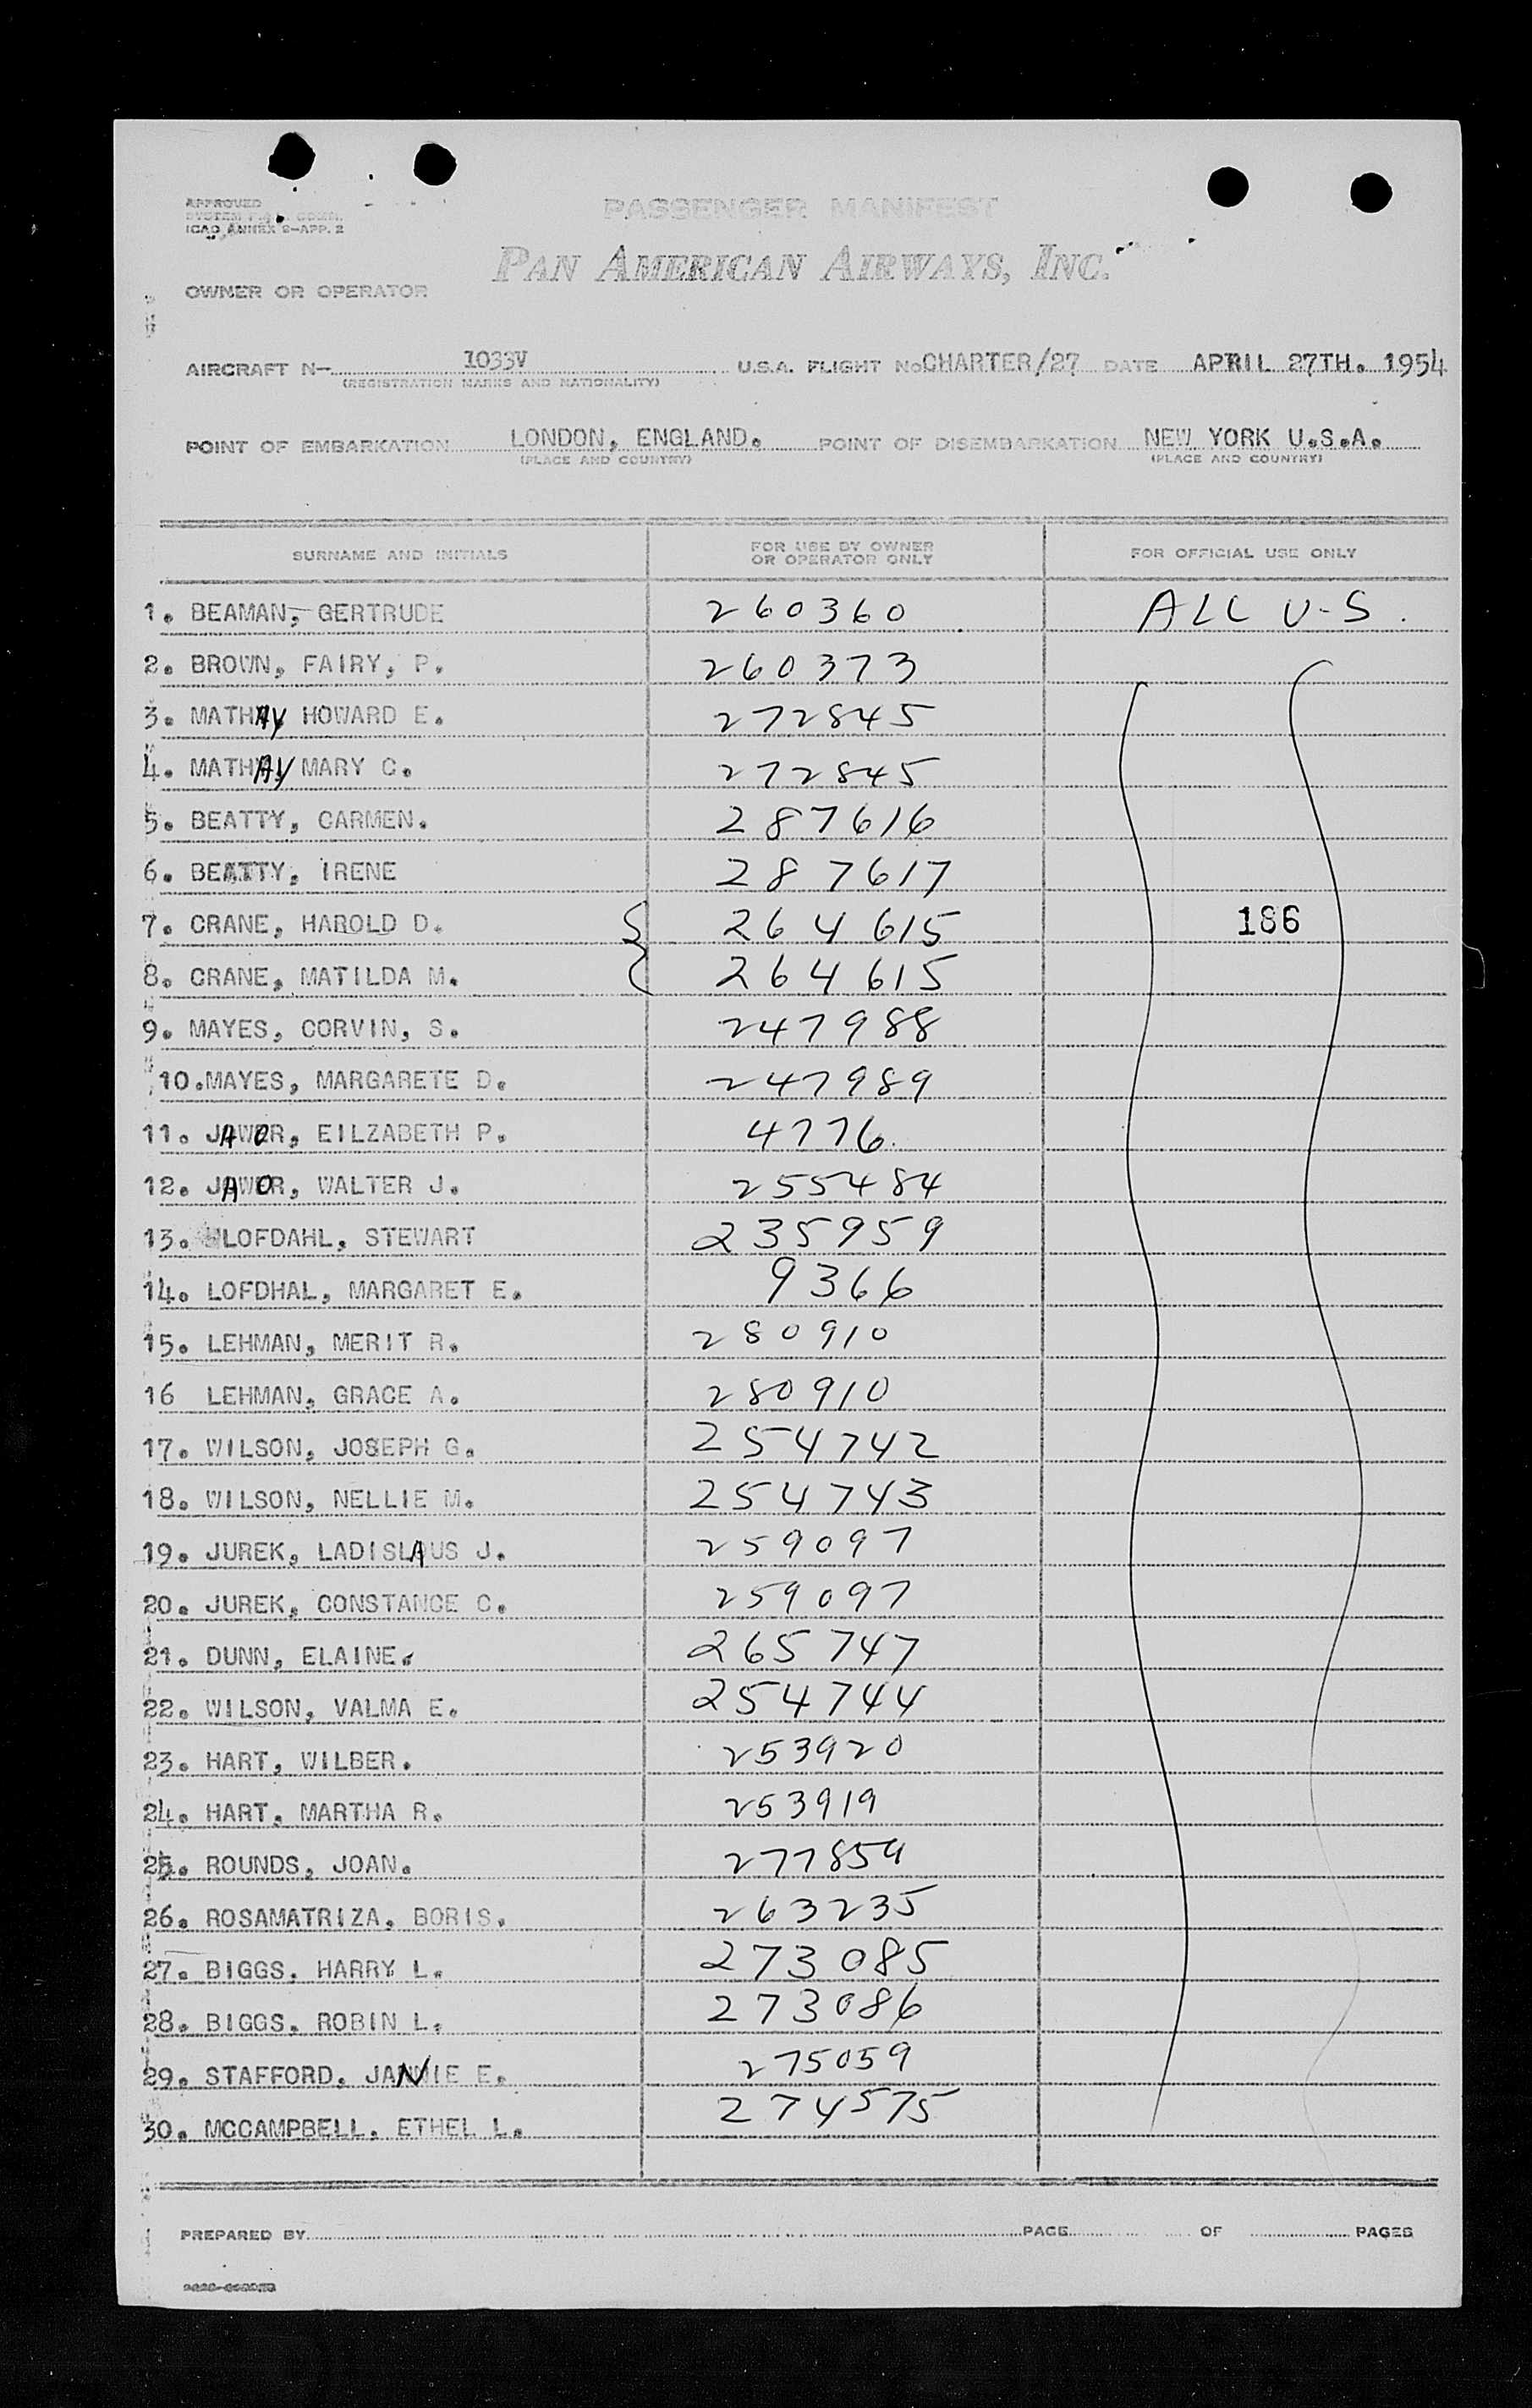 APPROVED
ICAO ANNEX 9-APP. 2
PASSENGER MANIFEST
PAN AMERICAN AIRWAYS, INC.
OWNER OR OPERATOR
AIRCRAFT N- 1033V U.S.A. FLIGHT No CHARTER/27 DATE APRIL 27TH. 1954
(REGISTRATION MARKS AND NATIONALITY)
POINT OF EMBARKATION LONDON, ENGLAND. POINT OF DISEMBARKATION NEW YORK U.S.A.
(PLACE AND COUNTRY) (PLACE AND COUNTRY)
SURNAME AND INITIALS FOR USE BY OWNER OR OPERATOR ONLY FOR OFFICIAL USE ONLY
1. BEAMAN, GERTRUDE 260360 ALL U-S.
2. BROWN, FAIRY, P. 260373
3. MATHAY HOWARD E. 272845
4. MATHAY MARY C. 272845
5. BEATTY, CARMEN. 287616
6. BEATTY, IRENE 287617
7. CRANE, HAROLD D. 264615 186
8. CRANE, MATILDA M. 264615
9. MAYES, CORVIN, S. 247988
10. MAYES, MARGARETE D. 247989
11. JAWOR, EILZABETH P. 4776.
12. JAWOR, WALTER J. 255484
13. LOFDAHL, STEWART 235959
14. LOFDHAL, MARGARET E. 9366
15. LEHMAN, MERIT R. 280910
16 LEHMAN, GRACE A. 280910
17. WILSON, JOSEPH G. 254742
18. WILSON, NELLIE M. 254743
19. JUREK, LADISLAUS J. 259097
20. JUREK, CONSTANCE C. 259097
21. DUNN, ELAINE. 265747
22. WILSON, VALMA E. 254744
23. HART, WILBER. 253920
24. HART, MARTHA R. 253919
25. ROUNDS, JOAN. 277859
26. ROSAMATRIZA, BORIS. 263235
27. BIGGS. HARRY L. 273085
28. BIGGS. ROBIN L. 273086
29. STAFFORD. JANNIE E. 275059
30. MCCAMPBELL. ETHEL L. 274575
PREPARED BY PAGE OF PAGES